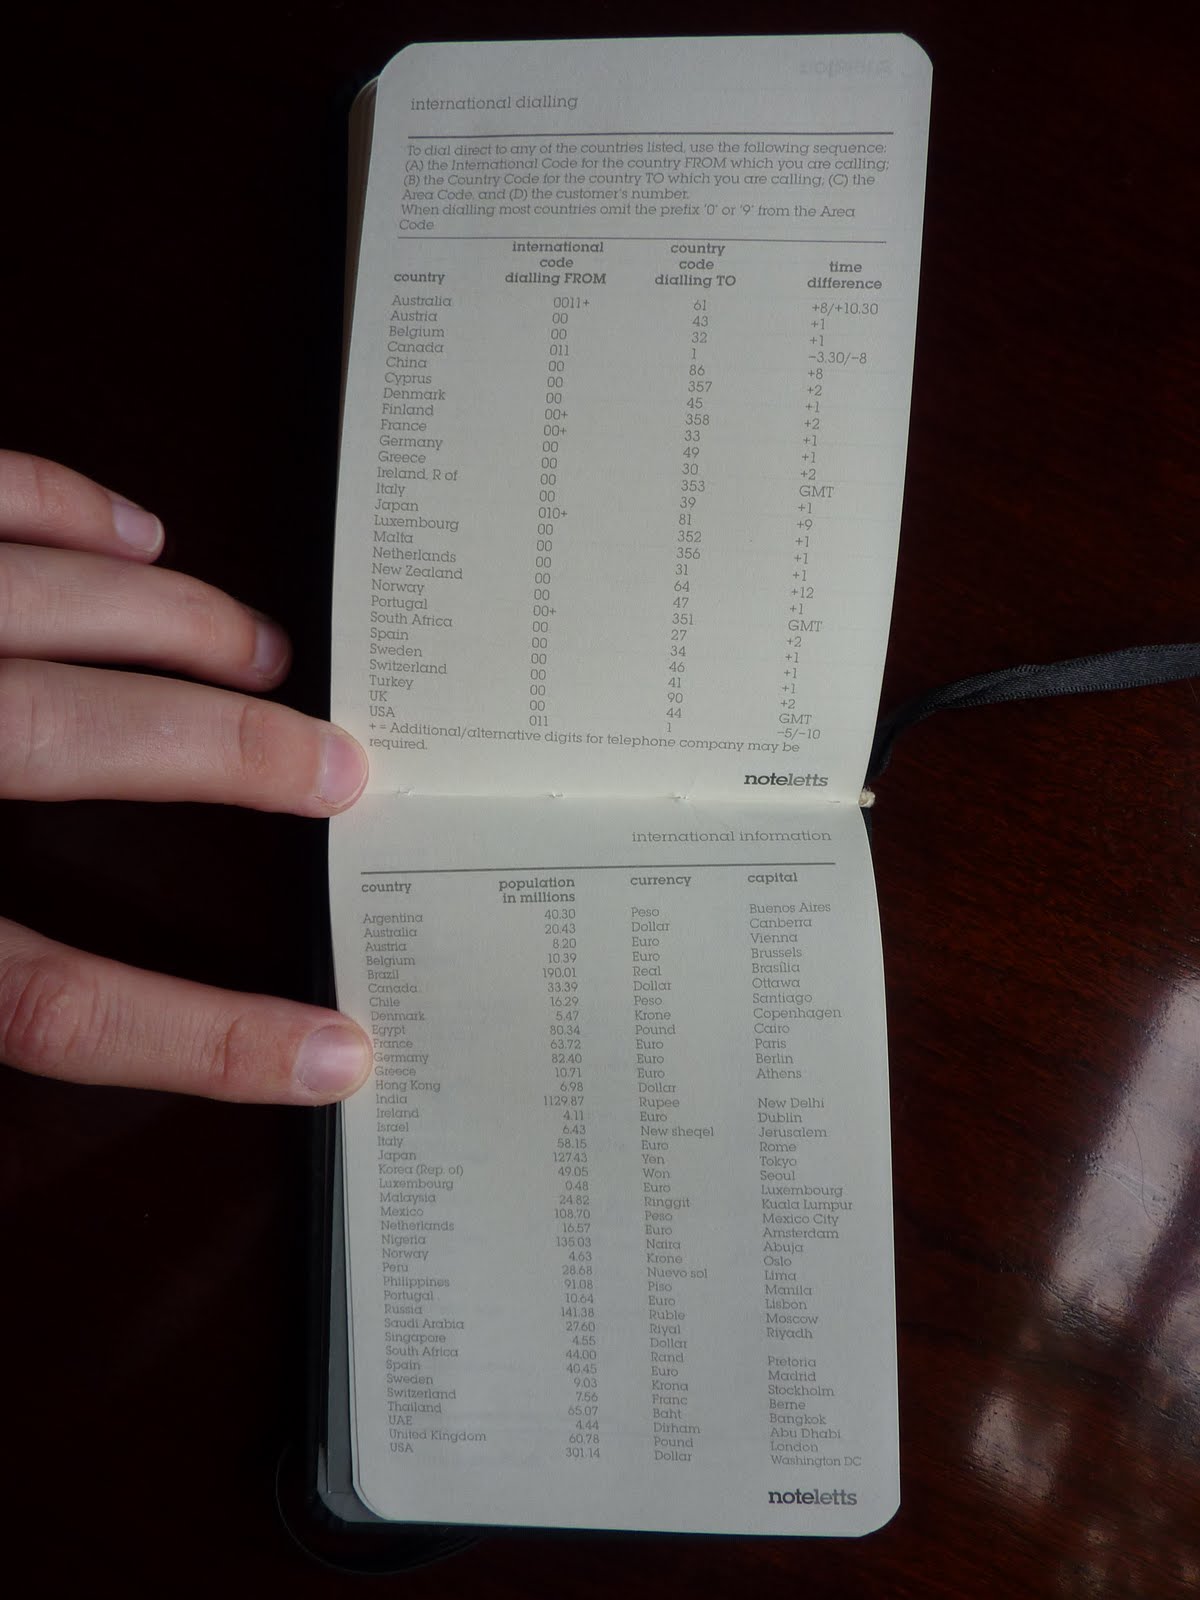 international dialling
To dial direct to any of the countries listed, use the following sequence:
(A) the International Code for the country FROM which you are calling;
(B) the Country Code for the country TO which you are calling; (C) the
Area Code, and (D) the customer's number.
When dialling most countries omit the prefix '0' or '9' from the Area
Code
country international code dialling FROM country code dialling TO time difference
Australia 0011+ 61 +8/+10.30
Austria 00 43 +1
Belgium 00 32 +1
Canada 011 1 -3.30/-8
China 00 86 +8
Cyprus 00 357 +2
Denmark 00 45 +1
Finland 00+ 358 +2
France 00+ 33 +1
Germany 00 49 +1
Greece 00 30 +2
Ireland, R of 00 353 GMT
Italy 00 39 +1
Japan 010+ 81 +9
Luxembourg 00 352 +1
Malta 00 356 +1
Netherlands 00 31 +1
New Zealand 00 64 +12
Norway 00 47 +1
Portugal 00+ 351 GMT
South Africa 00 27 +2
Spain 00 34 +1
Sweden 00 46 +1
Switzerland 00 41 +1
Turkey 00 90 +2
UK 00 44 GMT
USA 011 1 -5/-10
+ = Additional/alternative digits for telephone company may be
required.
noteletts
international information
country population in millions currency capital
Argentina 40.30 Peso Buenos Aires
Australia 20.43 Dollar Canberra
Austria 8.20 Euro Vienna
Belgium 10.39 Euro Brussels
Brazil 190.01 Real Brasília
Canada 33.39 Dollar Ottawa
Chile 16.29 Peso Santiago
Denmark 5.47 Krone Copenhagen
Egypt 80.34 Pound Cairo
France 63.72 Euro Paris
Germany 82.40 Euro Berlin
Greece 10.71 Euro Athens
Hong Kong 6.98 Dollar
India 1129.87 Rupee New Delhi
Ireland 4.11 Euro Dublin
Israel 6.43 New sheqel Jerusalem
Italy 58.15 Euro Rome
Japan 127.43 Yen Tokyo
Korea (Rep. of) 49.05 Won Seoul
Luxembourg 0.48 Euro Luxembourg
Malaysia 24.82 Ringgit Kuala Lumpur
Mexico 108.70 Peso Mexico City
Netherlands 16.57 Euro Amsterdam
Nigeria 135.03 Naira Abuja
Norway 4.63 Krone Oslo
Peru 28.68 Nuevo sol Lima
Philippines 91.08 Piso Manila
Portugal 10.64 Euro Lisbon
Russia 141.38 Ruble Moscow
Saudi Arabia 27.60 Riyal Riyadh
Singapore 4.55 Dollar
South Africa 44.00 Rand Pretoria
Spain 40.45 Euro Madrid
Sweden 9.03 Krona Stockholm
Switzerland 7.56 Franc Berne
Thailand 65.07 Baht Bangkok
UAE 4.44 Dirham Abu Dhabi
United Kingdom 60.78 Pound London
USA 301.14 Dollar Washington DC
noteletts